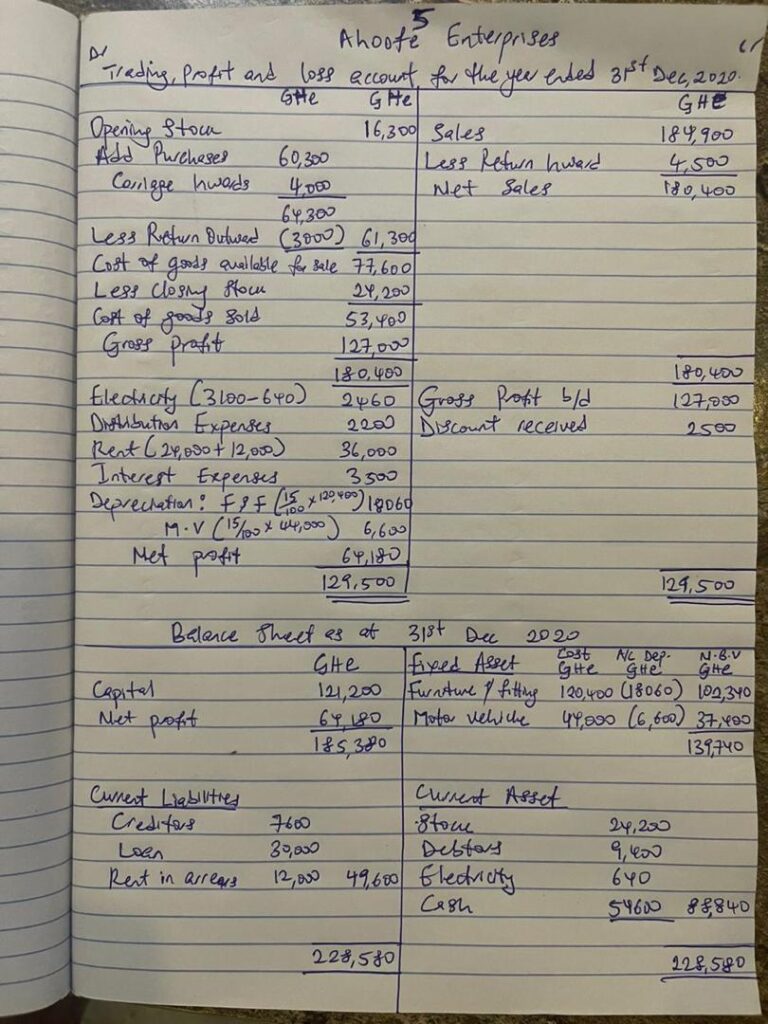 5
Ahoofe Enterprises
Dr Cr
Trading, profit and loss account for the year ended 31st Dec, 2020.
GHe GHe GHe
Opening Stock 16,300 Sales 184,900
Add Purchases 60,300 Less Return Inward 4,500
Carriage Inwards 4,000 Net Sales 180,400
64,300
Less Return Outward (3000) 61,300
Cost of goods available for sale 77,600
Less closing Stock 24,200
Cost of goods Sold 53,400
Gross profit 127,000
180,400 180,400
Electricity (3100-640) 2460 Gross Profit b/d 127,000
Distribution Expenses 2200 Discount received 2500
Rent (24,000+12,000) 36,000
Interest Expenses 3500
Depreciation: F & F (15/100 x 120,400) 18060
M.V (15/100 x 44,000) 6,600
Net profit 64,180
129,500 129,500
Balance Sheet as at 31st Dec 2020
GHe Fixed Asset Cost GHe Ac Dep. GHe N.B.V GHe
Capital 121,200 Furniture & fitting 120,400 (18060) 102,340
Net profit 64,180 Motor vehicle 44,000 (6,600) 37,400
185,380 139,740
Current Liabilities Current Asset
Creditors 7600 Stock 24,200
Loan 30,000 Debtors 9,400
Rent in arrears 12,000 49,600 Electricity 640
Cash 54600 88,840
228,580 228,580